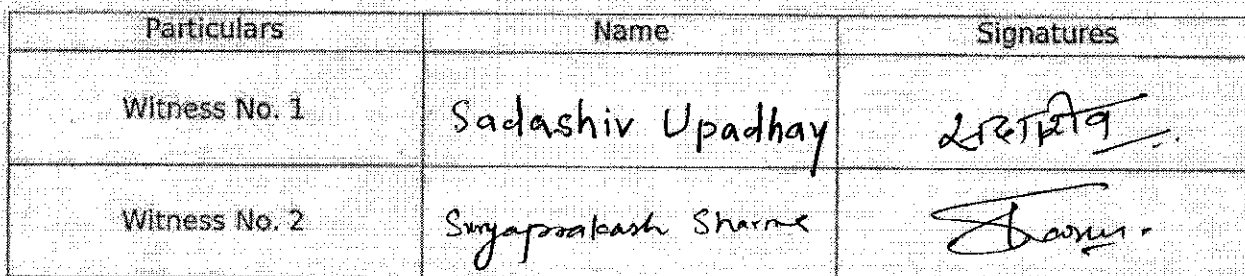 Particulars Name Signatures
Witness No. 1 Sadashiv Upadhay सदाशिव
Witness No. 2 Suryaprakash Sharma